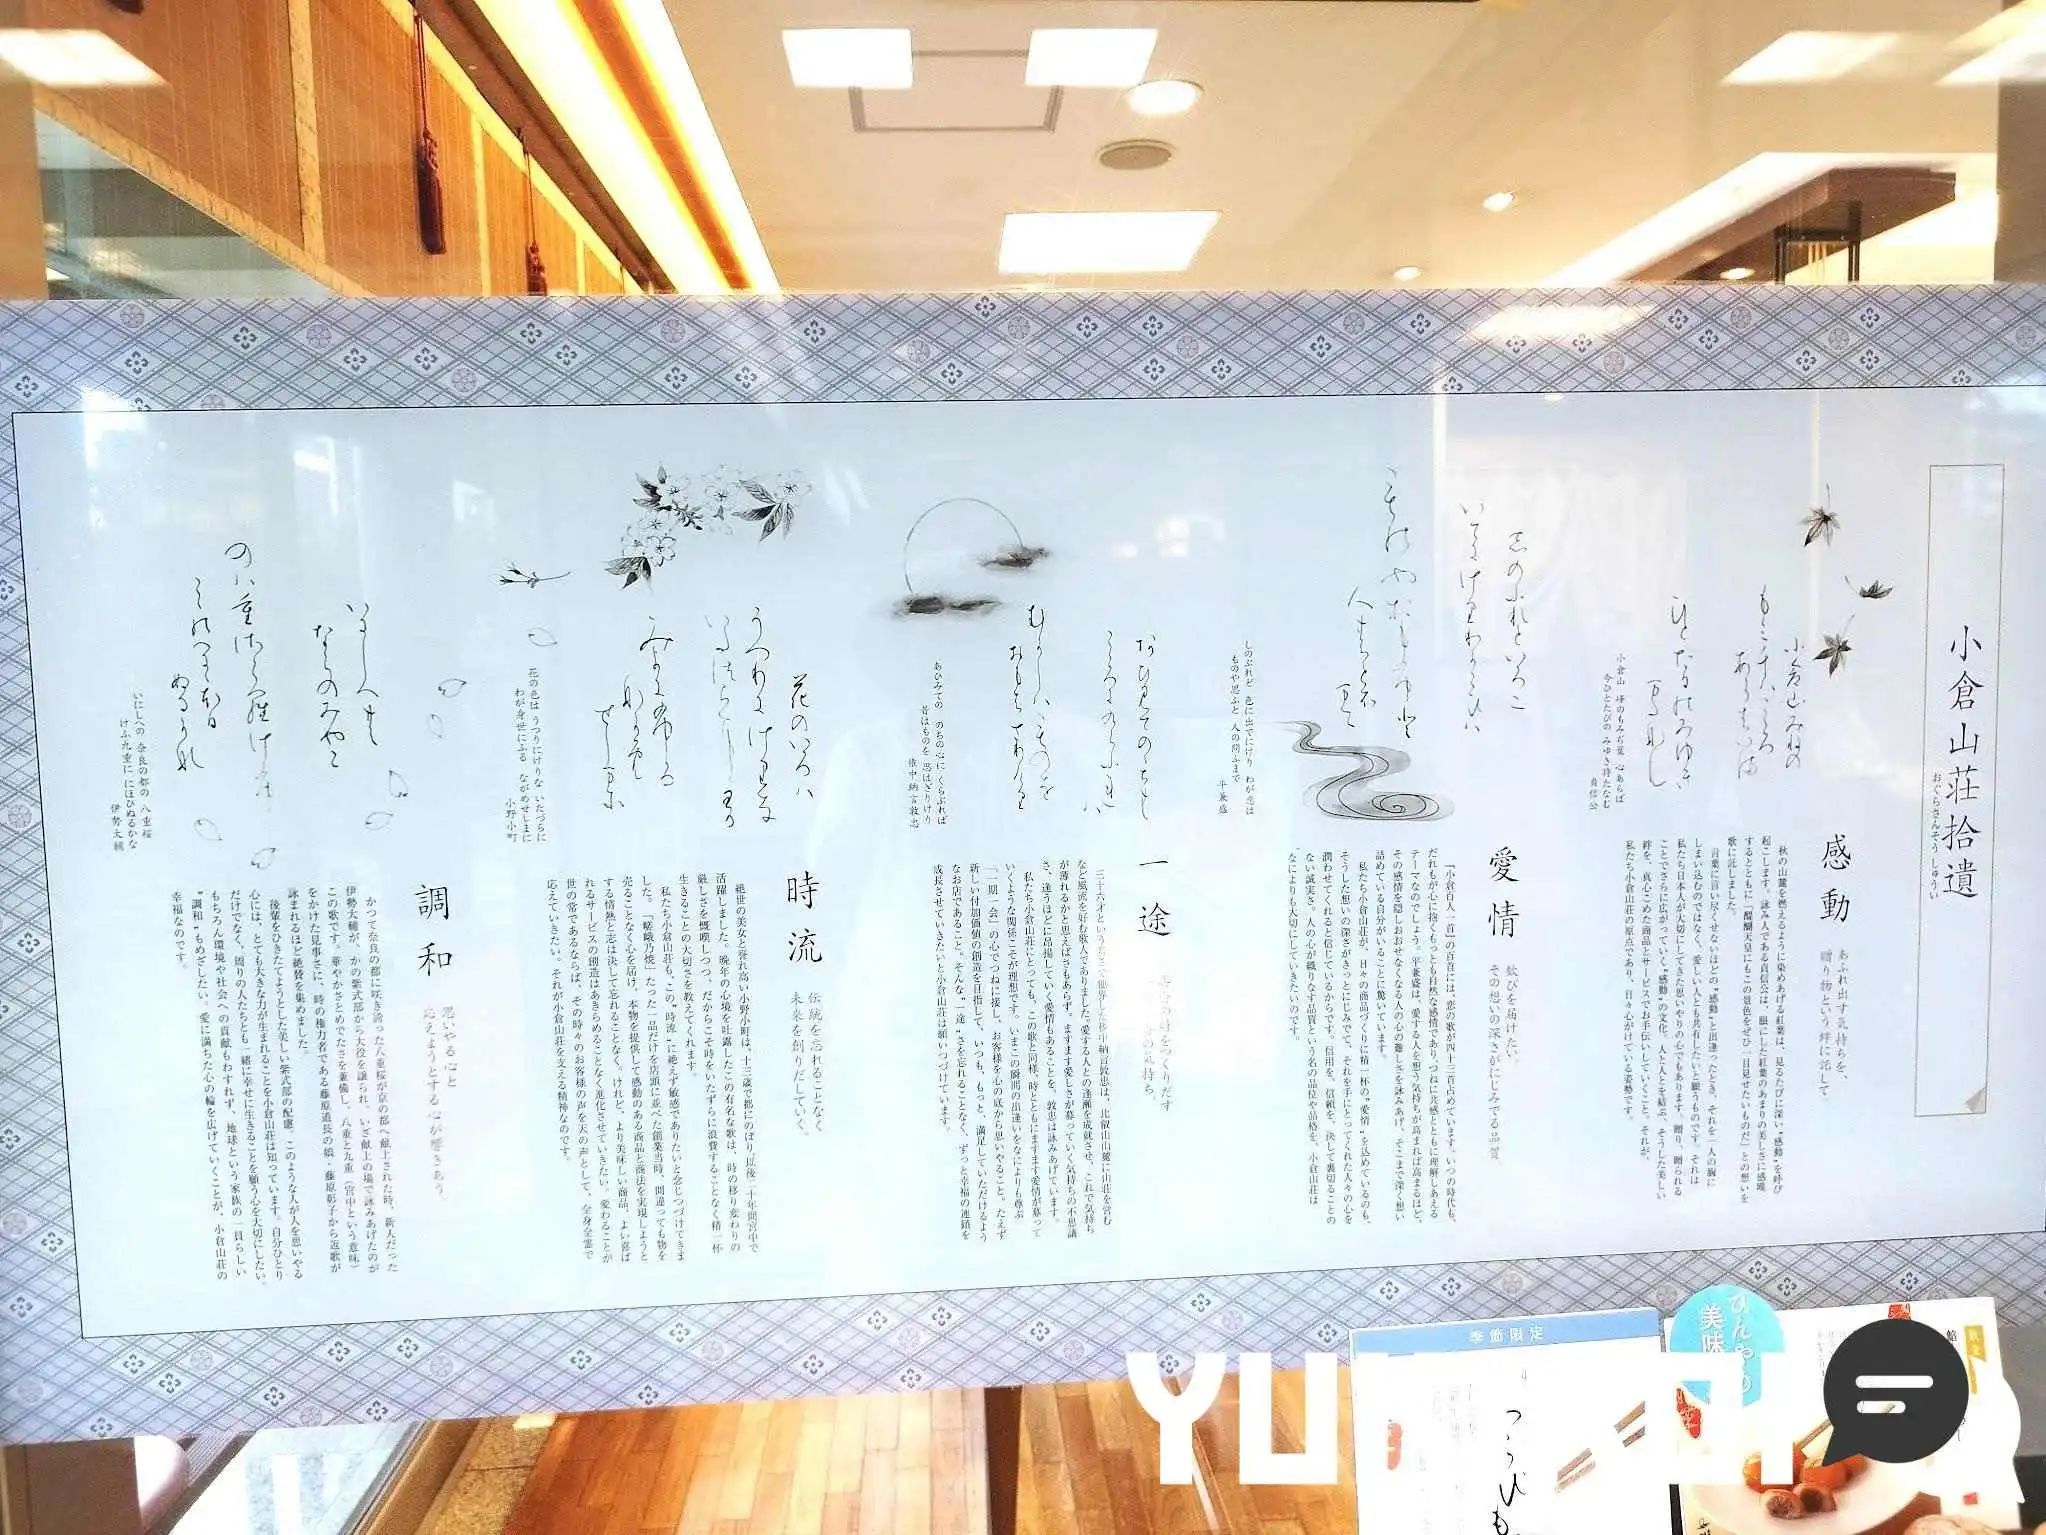 小倉山荘拾遺
おぐらさんそう しゅうい
小倉山みね
もみぢ
ひとたびのみゆき
またなむ
小倉山 峰のもみぢ葉 心あらば
今ひとたびの みゆき待たなむ
貞信公
感動
あふれ出す気持ちを、
贈り物という絆に託して。
秋の山麓を燃えるように染めあげる紅葉は、見るたびに深い"感動"を呼び
起こします。詠み人である貞信公は、眼にした紅葉のあまりの美しさに感嘆
するとともに「醍醐天皇にもこの景色をぜひ一目見せたいものだ」との想いを
歌に託しました。
言葉に言い尽くせないほどの"感動"と出逢ったとき、それを一人の胸に
しまい込むのではなく、愛しい人とも共有したいと願うものです。それは
私たち日本人が大切にしてきた思いやりの心でもあります。贈り、贈られる
ことでさらに広がっていく"感動"の文化。人と人とを結ぶ、そうした美しい
絆を、真心こめた商品とサービスでお手伝いしていくこと。それが、
私たち小倉山荘の原点であり、日々心がけている姿勢です。
しのぶれど 色に出でにけり わが恋は
ものや思ふと 人の問ふまで
平兼盛
愛情
歓びを届けたい。
その想いの深さがにじみでる品質。
「小倉百人一首」の百首には、恋の歌が四十三首占めています。いつの時代も、
だれもが心に抱くもっとも自然な感情であり、つねに共感とともに理解しあえる
テーマなのでしょう。平兼盛は、愛する人を想う気持ちが高まれば高まるほど、
その感情を隠しおおせなくなる人の心の難しさを詠みあげ、そこまで深く想い
詰めている自分がいることに驚いています。
私たち小倉山荘が、日々の商品づくりに精一杯の"愛情"を込めているのも、
そうした想いの深さがきっとにじみでて、それを手にとってくれた人々の心を
潤わせてくれると信じているからです。信用を、信頼を、決して裏切ることの
ない誠実さ。人の心が織りなす品質という名の品位や品格を、小倉山荘は
なによりも大切にしていきたいのです。
あひみての のちの心に くらぶれば
昔はものを 思はざりけり
権中納言敦忠
一途
三十六才という若さで他界した権中納言敦忠は、比叡山山麓に山荘を営む
など風流を好む歌人でありました。愛する人との逢瀬を成就させ、これで気持ち
が薄れるかと思えばさもあらず、ますます愛しさが募っていく気持ちの不思議
さ、逢うほどに昂揚していく愛情もあることを、敦忠は詠みあげています。
私たち小倉山荘にとっても、この歌と同様、時とともにますます愛情が募って
いくような関係こそが理想です。いまこの瞬間の出逢いをなによりも尊ぶ
「一期一会」の心でつねに接し、お客様を心の底から思いやること。たえず
新しい付加価値の創造を目指して、いつも、もっと、満足していただけるよう
なお店であること。そんな"一途"さを忘れることなく、ずっと幸福の連鎖を
成長させていきたいと小倉山荘は願いつづけています。
花のいろは
うつりにけりな
花の色は うつりにけりな いたづらに
わが身世にふる ながめせしまに
小野小町
時流
伝統を忘れることなく
未来を創りだしていく。
絶世の美女と誉れ高い小野小町は、十三歳で都にのぼり以後二十年間宮中で
活躍しました。晩年の心境を吐露したこの有名な歌は、時の移り変わりの
厳しさを慨嘆しつつ、だからこそ時をいたずらに浪費することなく精一杯
生きることの大切さを教えてくれます。
私たち小倉山荘も、この"時流"に絶えず敏感でありたいと念じつづけてきま
した。「嵯峨乃焼」たった一品だけを店頭に並べた創業当時、間違っても物を
売ることなく心を届け、本物を提供して感動のある商品と商法を実現しようと
する情熱と志は決して忘れることなく。けれど、より美味しい商品、よい喜ば
れるサービスの創造はあきらめることなく進化させていきたい。変わることが
世の常であるならば、その時々のお客様の声を天の声として、全身全霊で
応えていきたい。それが小倉山荘を支える精神なのです。
いにしへの 奈良の都の 八重桜
けふ九重に にほひぬるかな
伊勢大輔
調和
思いやる心と
応えようとする心が響きあう。
かつて奈良の都に咲き誇った八重桜が京の都へ献上された時、新人だった
伊勢大輔が、かの紫式部から大役を譲られ、いざ献上の場で詠みあげたのが
この歌です。華やかさとめでたさを兼備し、八重と九重（宮中という意味）
をかけた見事さに、時の権力者である藤原道長の娘・藤原彰子から返歌が
詠まれるほど絶賛を集めました。
後輩をひきたてようとした美しい紫式部の配慮。このような人が人を思いやる
心には、とても大きな力が生まれることを小倉山荘は知っています。自分ひとり
だけでなく、周りの人たちとも一緒に幸せに生きることを願う心を大切にしたい。
もちろん環境や社会への貢献もわすれず、地球という家族の一員らしい
"調和"もめざしたい。愛に満ちた心の輪を広げていくことが、小倉山荘の
幸福なのです。
季節限定
ひんやり
美味